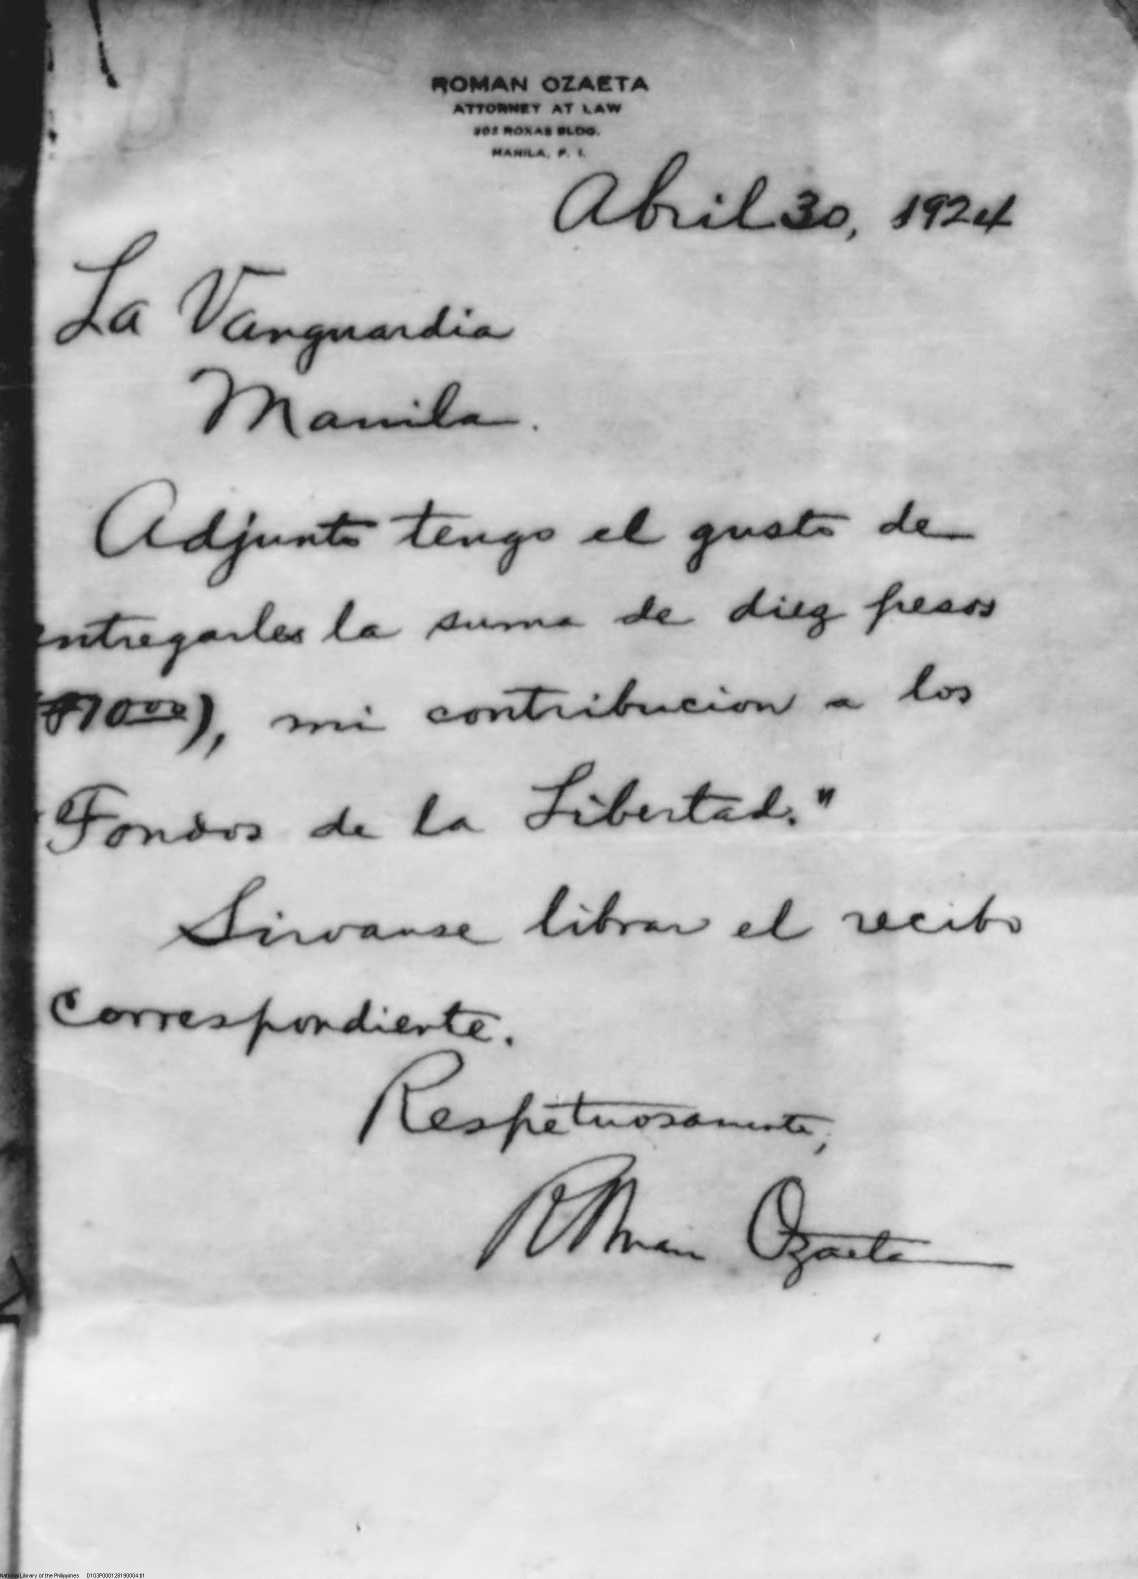 ROMAN OZAETA
ATTORNEY AT LAW
202 ROXAS BLDG.
MANILA, P. I.
Abril 30, 1924
La Vanguardia
Manila.
Adjunto tengo el gusto de
entregarles la suma de diez pesos
(₱10.00), mi contribucion a los
"Fondos de la Libertad."
Sirvanse librar el recibo
correspondiente.
Respetuosamente,
Roman Ozaeta
National Library of the Philippines